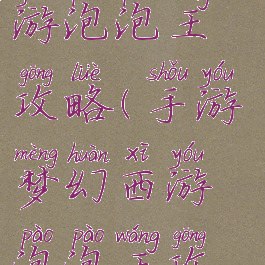 游泡泡王
gōng lüè shǒu yóu
攻略(手游
mèng huàn xī yóu
梦幻西游
pào pào wáng gōng
泡泡王攻